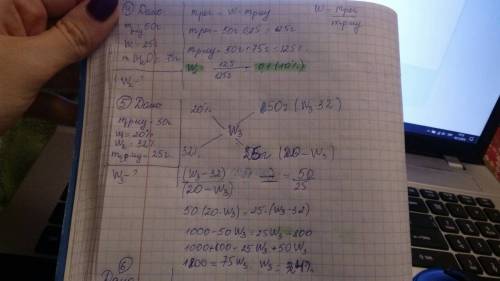 ④ Дано:
mр-ну = 50г
W = 25%
m(H₂O) = 75г
W₂ - ?
mр.в = W · mр-ну
W = mр.в / mр-ну
mр.в = 50г · 0,25 = 12,5г
mр-ну = 50г + 75г = 125г
W₂ = 12,5 / 125г = 0,1 (10%)
⑤ Дано:
mр-ну = 50г
W₁ = 20%
W₂ = 32%
mр-ну = 25г
W₃ - ?
20% 50г (W₃ 32)
W₃
32% 25г (20 - W₃)
(W₃ - 32) / (20 - W₃) = 50 / 25
50 (20 - W₃) = 25 · (W₃ - 32)
1000 - 50W₃ = 25W₃ - 800
1000 + 800 = 25W₃ + 50W₃
1800 = 75W₃ W₃ = 24%
⑥
Дано: